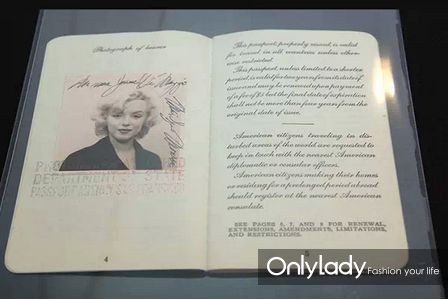 Photograph of bearer
Norma Jeane DiMaggio
PASSPORT AGENCY SAN FRANCISCO
DEPARTMENT OF STATE
4
This passport, properly visaed, is valid
for travel in all countries unless other-
wise restricted.
This passport, unless limited to a shorter
period, is valid for two years from its date if
issue and may be renewed upon payment
of a fee of $5 but the final date of expiration
shall not be more than four years from the
original date of issue.
American citizens traveling in dis-
turbed areas of the world are requested to
keep in touch with the nearest American
diplomatic or consular officers.
American citizens making their homes
or residing for a prolonged period abroad
should register at the nearest American
consulate.
SEE PAGES 6, 7, AND 8 FOR RENEWAL,
EXTENSIONS, AMENDMENTS, LIMITATIONS,
AND RESTRICTIONS.
Onlylady Fashion your life